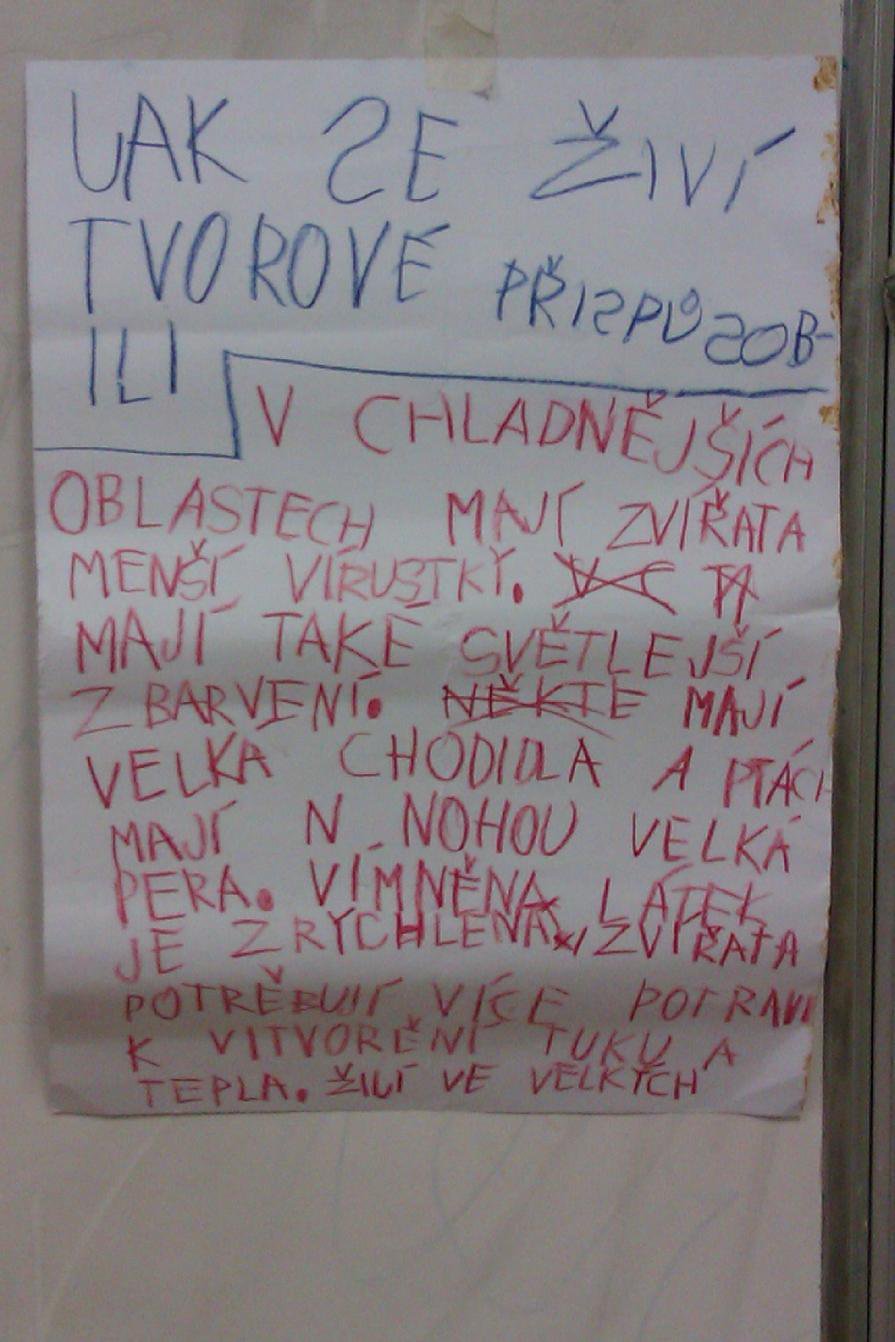 JAK SE ŽIVÍ
TVOROVÉ PŘIZPŮSOB-
ILI
V CHLADNĚJŠÍCH
OBLASTECH MAJÍ ZVÍŘATA
MENŠÍ VÍRUSTKÝ.
MAJÍ TAKÉ SVĚTLEJŠÍ
ZBARVENÍ. NĚKTE MAJÍ
VELKÁ CHODIDLA A PTÁCI
MAJÍ N NOHOU VELKÁ
PERA. VÍMNĚNA LÁTEK
JE ZRYCHLENA, ZVÍŘATA
POTRĚBUJÍ VÍCE POTRAVI
K VITVOŘENÍ TUKU A
TEPLA. ŽIJÍ VE VELKÝCH